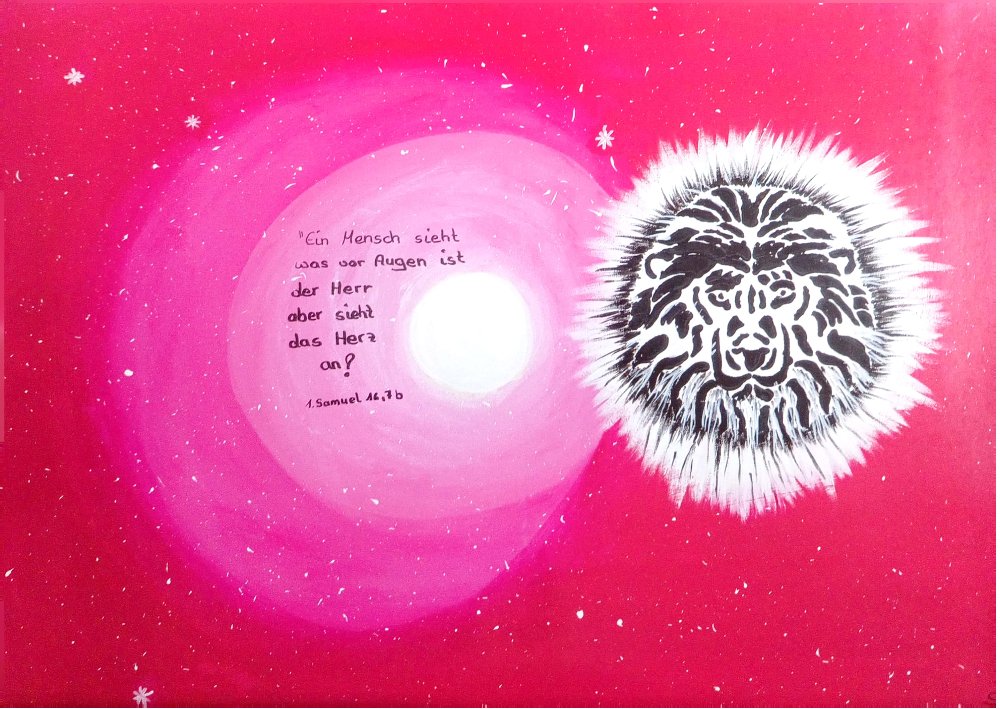 "Ein Mensch sieht
was vor Augen ist
der Herr
aber sieht
das Herz
an?
1.Samuel 16,7b